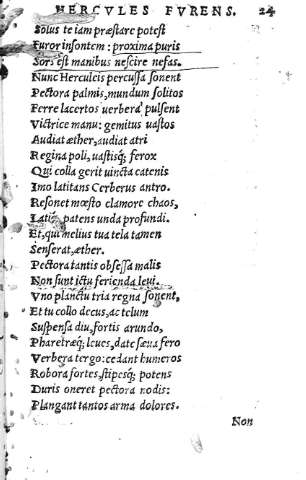 HERCVLES FVRENS. 24
Solus te iam præstare potest
Furor insontem: proxima puris
Sors est manibus nescire nefas.
Nunc Herculeis percussa sonent
Pectora palmis, mundum solitos
Ferre lacertos uerbera pulsent
Victrice manu: gemitus uastos
Audiat æther, audiat atri
Regina poli, uastisq; ferox
Qui colla gerit uincta catenis
Imo latitans Cerberus antro.
Resonet mœsto clamore chaos,
Latiq; patens unda profundi.
Et, qui melius tua tela tamen
Senserat, æther.
Pectora tantis obsessa malis
Non sunt ictu ferienda leui.
Vno planctu tria regna sonent,
Et tu collo decus, ac telum
Suspensa diu, fortis arundo,
Pharetræq; leues, date sæua fero
Verbera tergo: cedant humeros
Robora fortes, stipesq; potens
Duris oneret pectora nodis:
Plangant tantos arma dolores.
Non